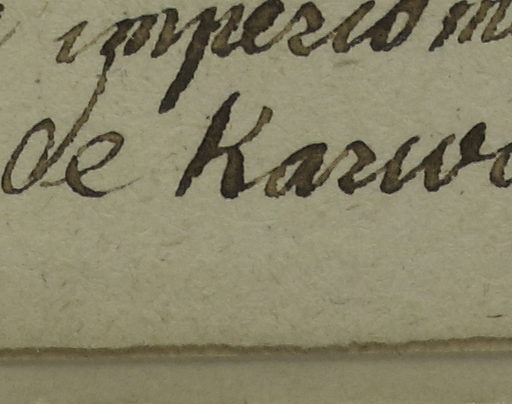 imperio m
de Karwi